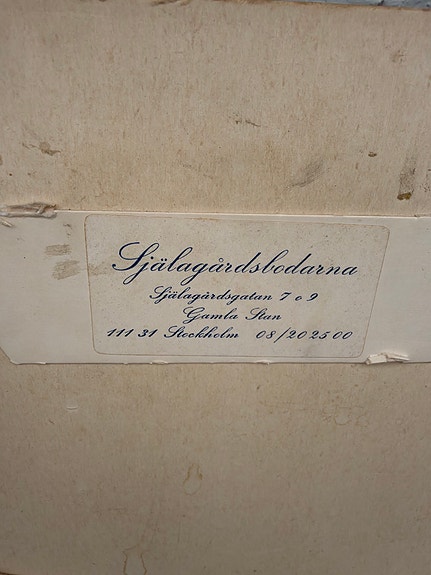 Själagårdsbodarna
Själagårdsgatan 7 o 9
Gamla Stan
111 31 Stockholm 08/20 25 00